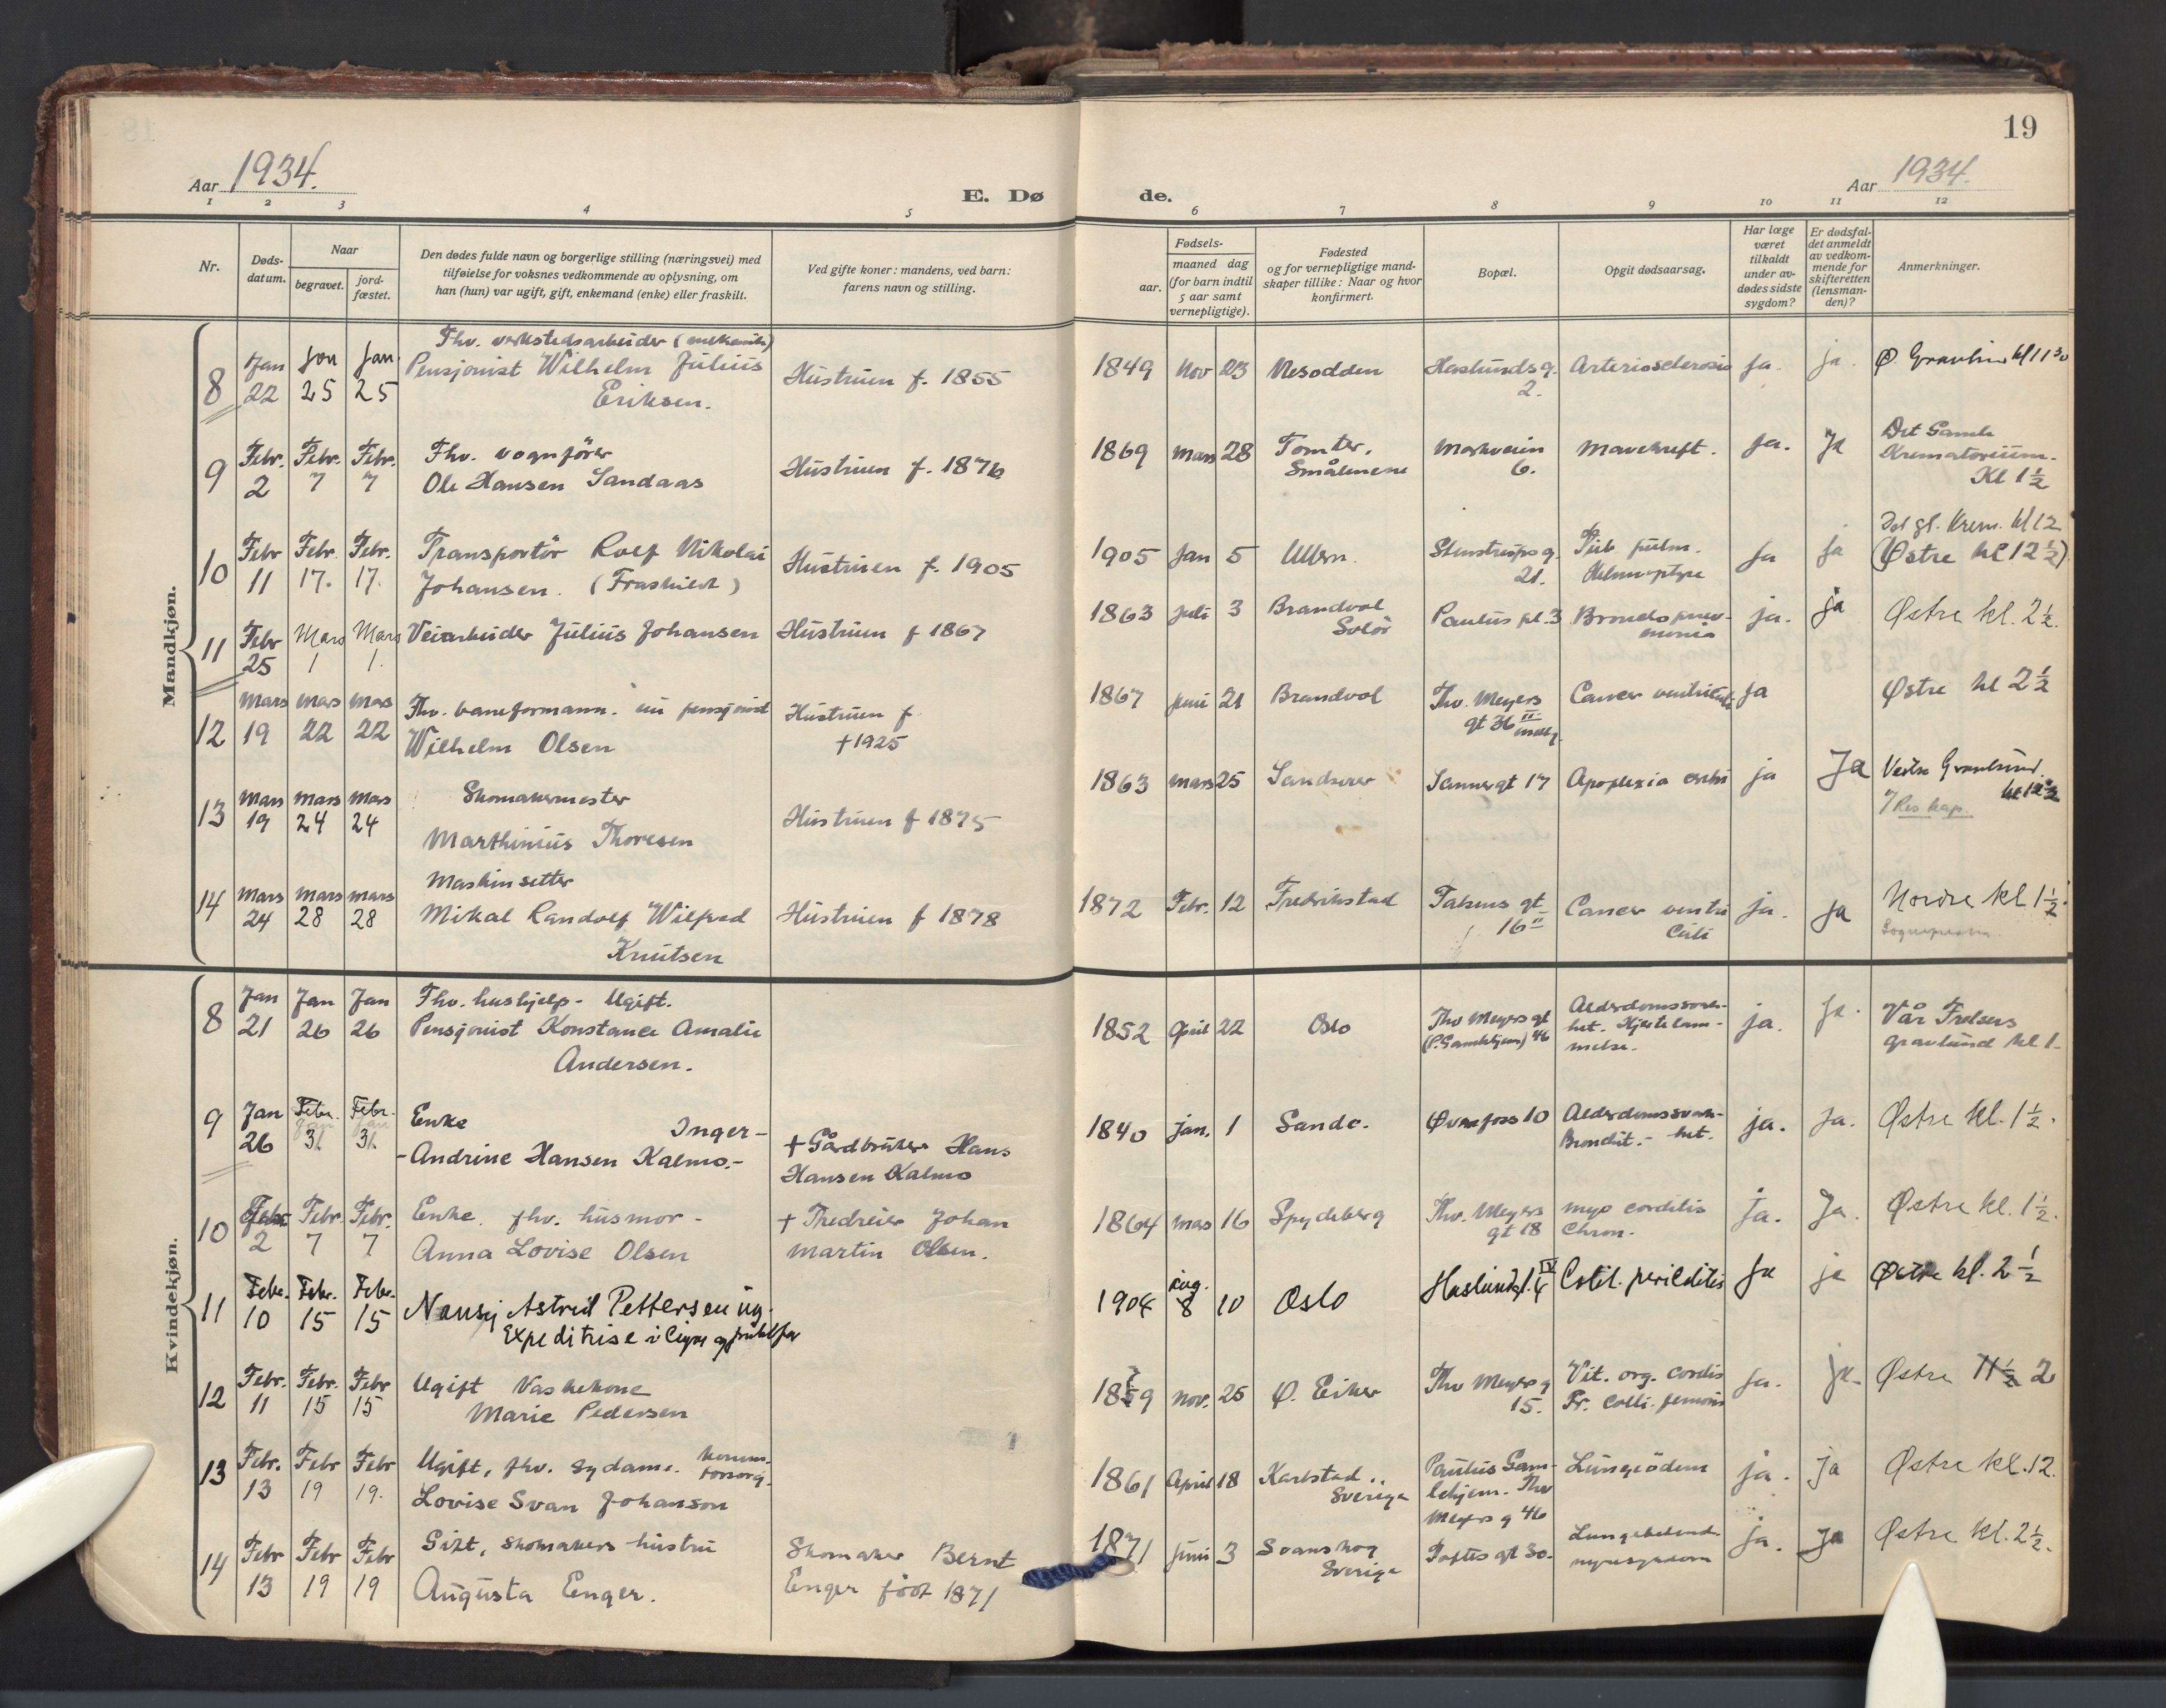 19
Aar 1934.
E. Dø
de.
Aar 1934.
1 2 3 4 5 6 7 8 9 10 11 12
Nr.
Døds-
datum.
Naar
begravet.
jord-
fæstet.
Den dødes fulde navn og borgerlige stilling (næringsvei) med
tilføielse for voksnes vedkommende av oplysning, om
han (hun) var ugift, gift, enkemand (enke) eller fraskilt.
Ved gifte koner: mandens, ved barn:
farens navn og stilling.
Fødsels-
aar.
maaned dag
(for barn indtil
5 aar samt
vernepligtige).
Fødested
og for vernepligtige mand-
skaper tillike: Naar og hvor
konfirmert.
Bopæl.
Opgit dødsaarsag.
Har læge
været
tilkaldt
under av-
dødes sidste
sygdom?
Er dødsfal-
det anmeldt
av vedkom-
mende for
skifteretten
(lensman-
den)?
Anmerkninger.
Mandkjøn.
8
Jan 22
Jan 25
Jan. 25
Thv. verkstedsarbeider (mekanik)
Pensjonist Wilhelm Julius
Eriksen.
Hustruen f. 1855
1849 Nov 23
Nesodden
Haslunds g.
2.
Arteriosclerosis
ja.
ja.
Ø. Gravlund kl 11 30
9
Febr. 2
Febr. 7
Febr. 7
Fhv. vognfører
Ole Hansen Sandaas
Hustruen f. 1876
1869 Mars 28
Tomter,
Smålenene
Markveien
6.
Mavekreft.
ja.
Ja
Det Gamle
Krematorium.
Kl 1 1/2
10
Febr 11
Febr. 17.
Febr. 17.
Transportör Rolf Nikolai
Johansen. (Fraskilt)
Hustruen f. 1905
1905 Jan 5
Ullern.
Stenstrups g.
21.
Tub. pulm.
Hæmoptyse
Ja
ja
Det gl. Krem. kl 12
(Østre kl 12 1/2)
11
Febr 25
Mars 1
Mars 1.
Veiarbeider Julius Johansen
Hustruen f 1867
1863 Juli 3
Brandvol
Solör
Paulus pl. 3
Broncho pneu-
monia
ja.
ja
Østre kl. 2 1/2.
12
Mars 19
Mars 22
Mars 22
Fhv. baneformann. nu pensjonist
Wilhelm Olsen
Hustruen f
+ 1925
1867 Juni 21
Brandvol
Thv. Meyers
gt 36 II
Cancer ventriculi
Ja
Østre kl 2 1/2
13
Mars 19
Mars 24
Mars 24
Skomakermester
Marthinius Thoresen
Hustruen f 1875
1863 Mars 25
Sandsvær
Sannergt 17
Apoplexia cerebri
ja
Ja
Vestre Gravlund.
Res kap.
14
Mars 24
Mars 28
Mars 28
Maskinsetter
Mikal Randolf Wilfred
Knutsen
Hustruen f 1878
1872 Febr. 12
Fredrikstad
16 II
Cancer ventri
culi
ja.
Ja
Nordre kl. 1 1/2.
Sogneprest
Kvindekjøn.
8
Jan 21
Jan 26
Jan 26
Fhv. hushjelp - Ugift.
Pensjonist Konstance Amalie
Andersen.
1852 April 22
Oslo
Thv Meyers gt
(P. Gamlehjem) 46
Alderdomssvak-
het. Hjertelam-
melse.
ja.
ja.
Vår Frelsers
gravlund kl 1.
9
Jan 26
Febr. 3.
Febr. 3.
Enke Inger-
-Andrine Hansen Kalmo.-
+ Gårdbruker Hans
Hansen Kalmo
1840 Jan. 1
Sande.
Øvrefoss 10
Alderdomssvak-
Bronchit. - het.
ja.
Ja.
Østre kl. 1 1/2.
10
Febr. 2
Febr. 7
Febr. 7
Enke. fhv. husmor -
Anna Lovise Olsen
+ Tredreier Johan
Martin Olsen.
1864 Mars 16
Spydeberg
Thv. Meyers
gt 18
myo corditis
Chron.
ja.
Ja.
Østre kl. 1 1/2.
11
Febr. 10
Febr. 15
Febr. 15
Nansy Astrid Pettersen ug.
Expeditrise i Cigar og fruktfor
1904 aug. 8 10
Oslo
IV
Ja
ja
Østre kl. 2 1/2
12
Febr. 11
Febr. 15
Febr 15
Ugift Vaskekone
Marie Pedersen
1859 Nov. 25
Ø. Eiker
Thv Meyers g
15.
Vit. org. cordis
Fr. colli. femoris
Ja.
ja.
Østre 11 1/2 2
13
Febr. 13
Febr 19
Febr 19.
Ugift, fhv. sydame. komm.
forsorg.
Lovise Svan Johanson
1861 April 18
Karlstad..
Sverige
Paulus Gam-
lehjem. Thv
Meyers g 46
Lungeödem
ja.
ja
Østre kl. 12.
14
Febr 13
Febr 19
Febr 19
Gift, skomakers hustru
Augusta Enger.
Skomaker Bernt
Enger født 1871
1871 Juni 3
Svanskog
Sverige
Toftes gt 30.
Lungebetend.
nyresygdom
ja.
Ja
Østre kl. 2 1/2.